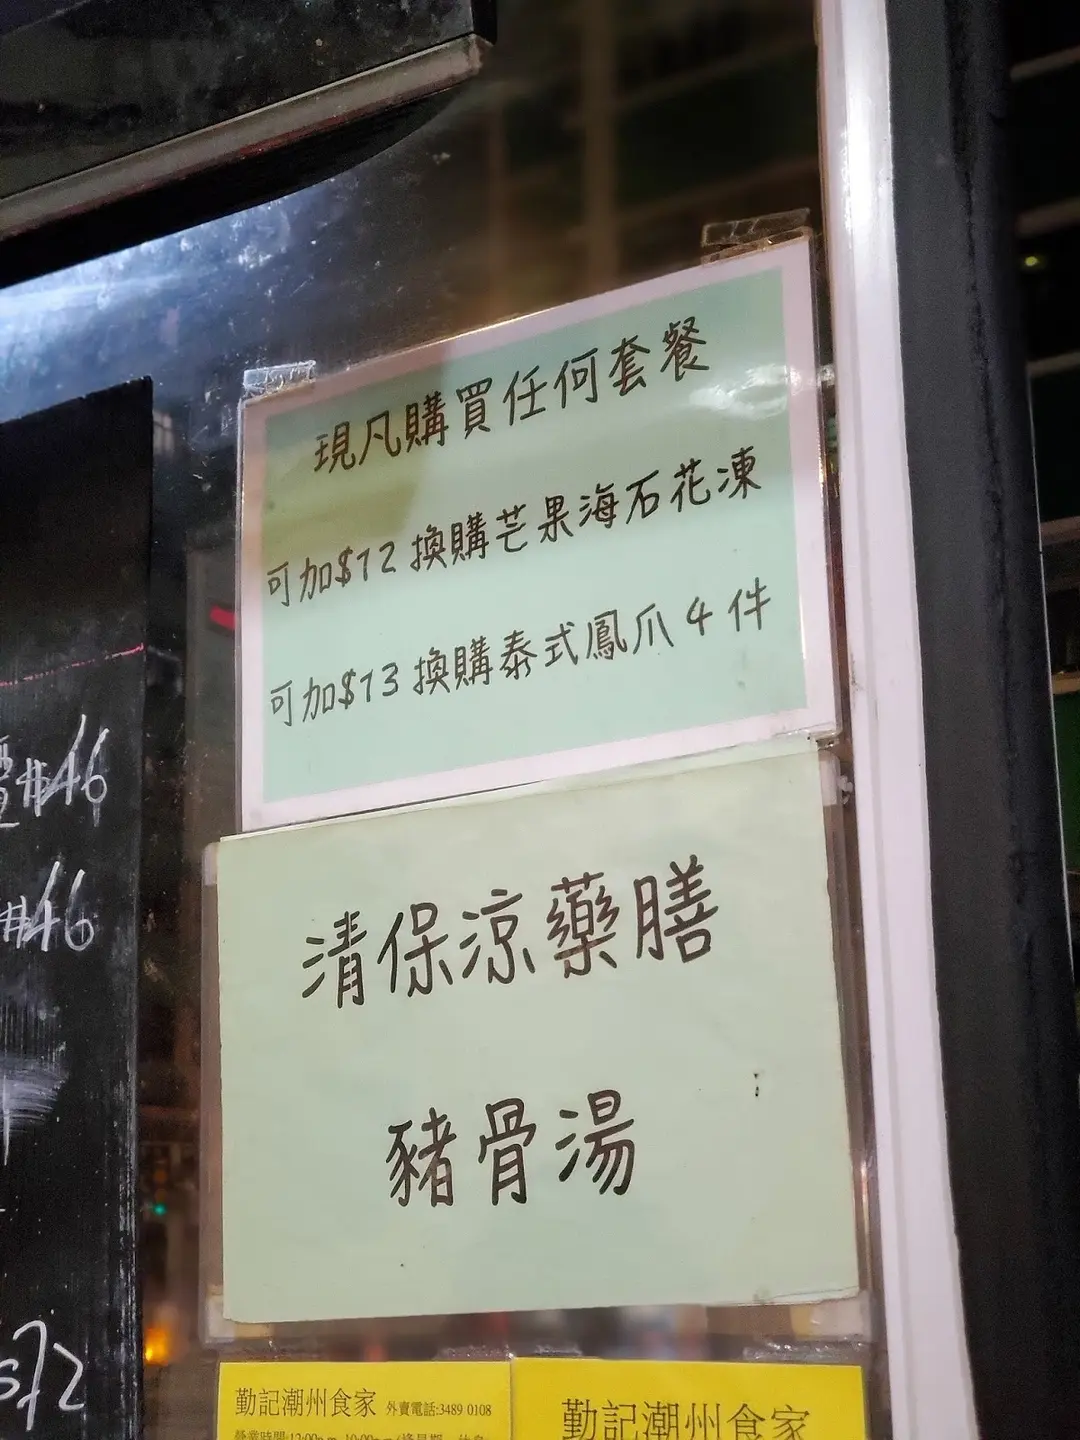 現凡購買任何套餐
可加$12換購芒果海石花凍
可加$13換購泰式鳳爪4件
清保涼藥膳
豬骨湯
$46
$46
$72
勤記潮州食家 外賣電話:3489 0108
營業時間:12:00p.m.-10:00p.m.
勤記潮州食家